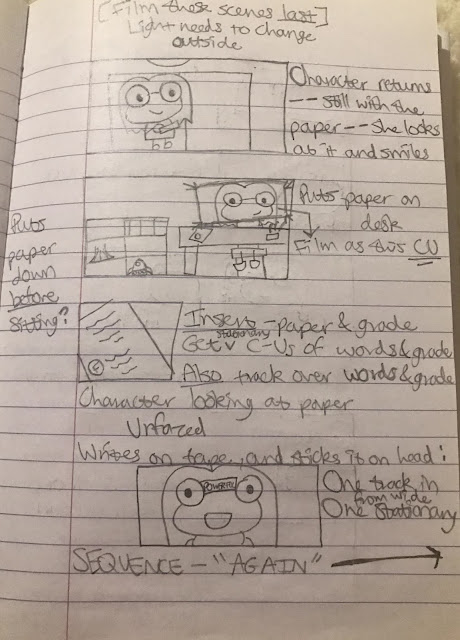 [Film these scenes last]
Light needs to change
outside
Character returns
-- still with the
paper -- she looks
at it and smiles
Puts paper on
desk
Film as this CU
Puts
paper
down
before
sitting?
Insert - paper & grade
Get stationary C-Us of words & grade
Also track over words & grade
Character looking at paper
Unfazed
Writes on tape, and sticks it on head:
POWERFUL
One track in
from wide
One stationary
SEQUENCE - "AGAIN"